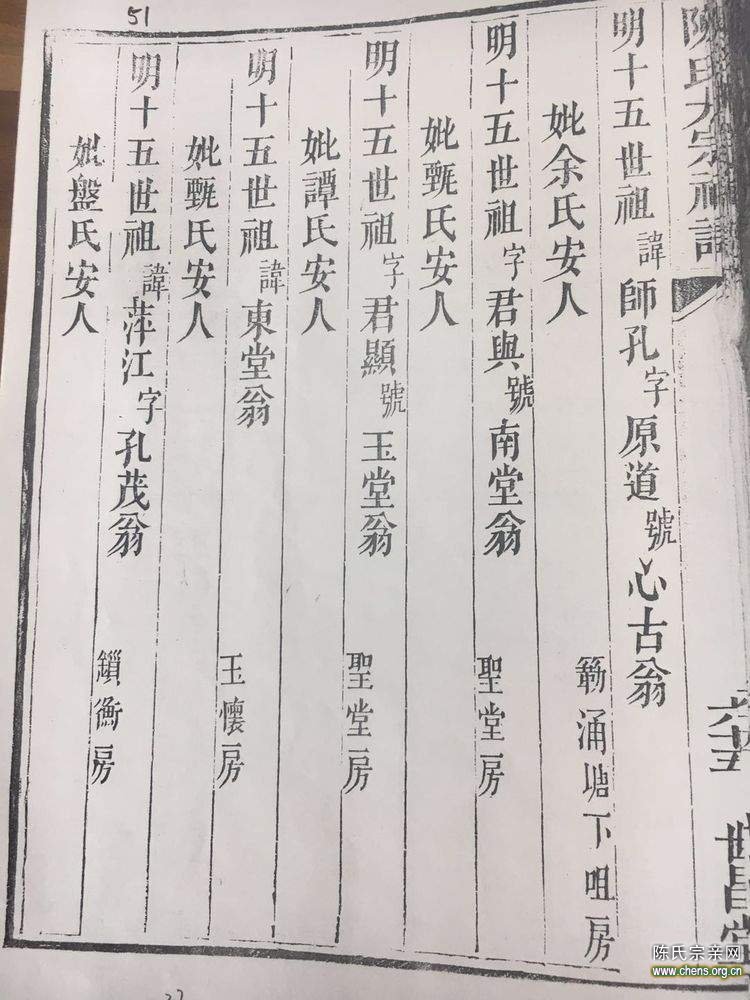 51
陳氏大宗祠譜
世昌堂
明十五世祖諱師孔字原道號心古翁
妣余氏安人
簕涌塘下咀房
明十五世祖字君與號南堂翁
妣甄氏安人
聖堂房
明十五世祖字君顯號玉堂翁
妣譚氏安人
聖堂房
明十五世祖諱東堂翁
妣甄氏安人
玉懷房
明十五世祖諱萍江字孔茂翁
妣盤氏安人
鎖衡房
陈氏宗亲网
www.chens.org.cn
37